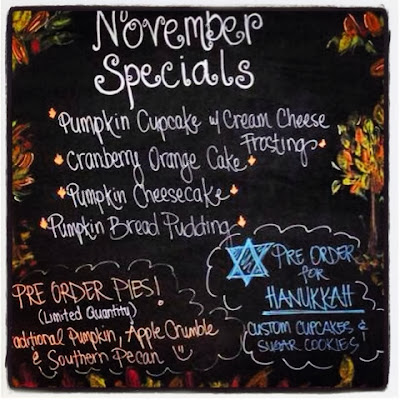 November
Specials
Pumpkin Cupcake w/ Cream Cheese
Frosting
Cranberry Orange Cake
Pumpkin Cheesecake
Pumpkin Bread Pudding
PRE ORDER PIES!
(Limited Quantity)
aditional Pumpkin, Apple Crumble
& Southern Pecan
PRE ORDER
FOR
HANUKKAH
CUSTOM CUPCAKES &
SUGAR COOKIES!